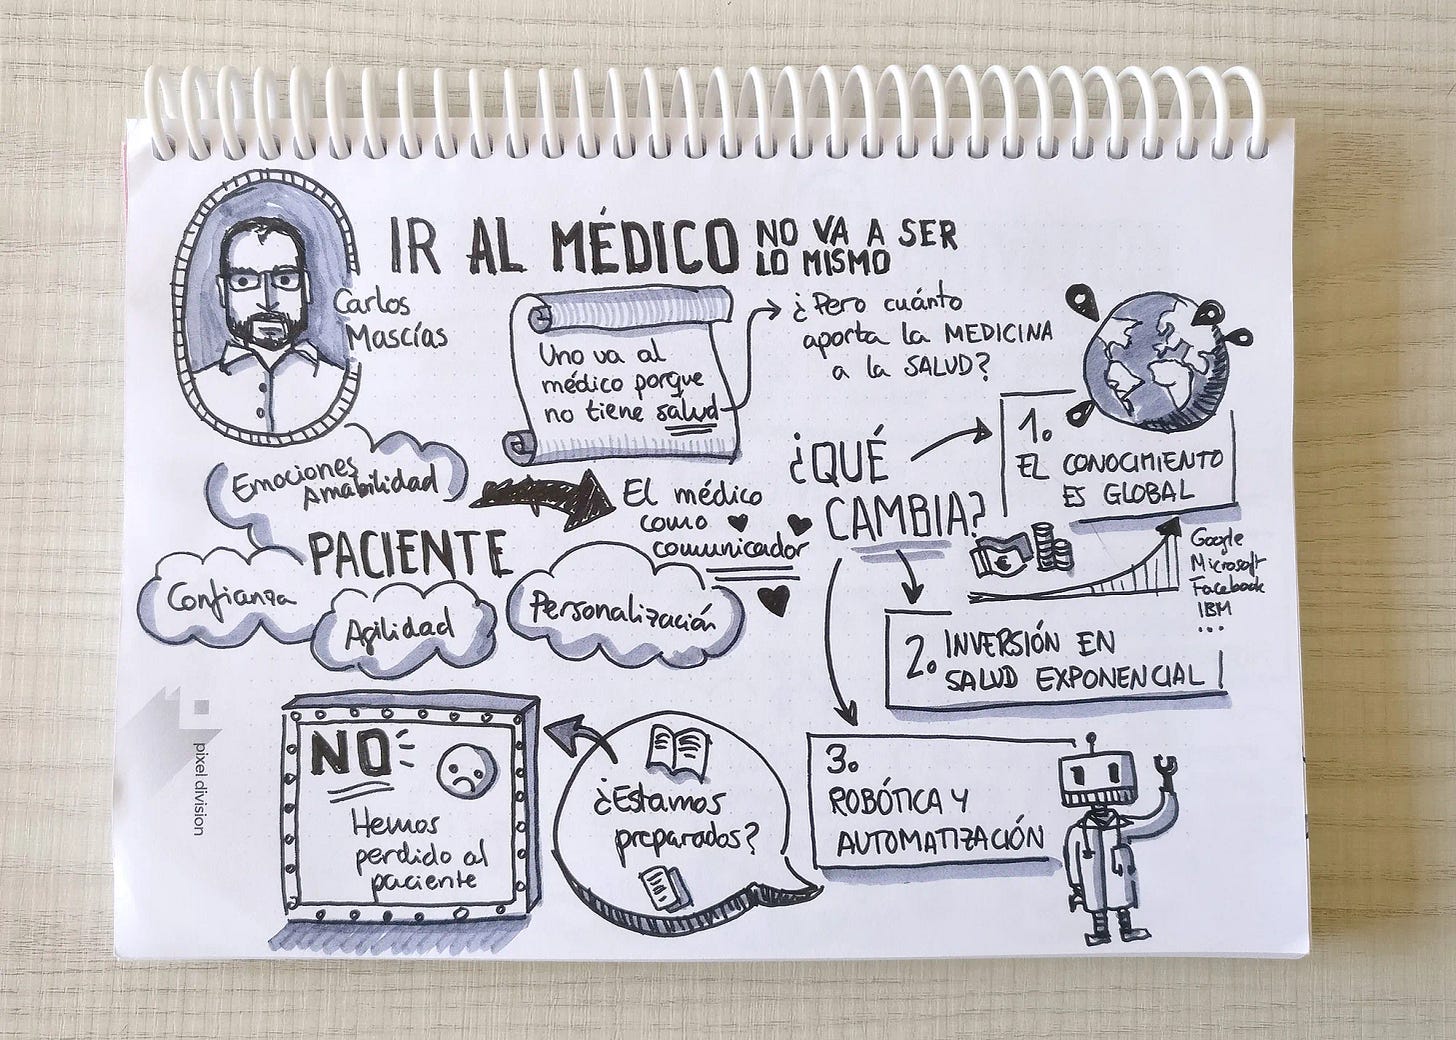 IR AL MÉDICO
NO VA A SER
LO MISMO
Carlos
Mascías
Uno va al
médico porque
no tiene salud
¿Pero cuánto
aporta la MEDICINA
a la SALUD?
Emociones
Amabilidad
PACIENTE
Confianza
Agilidad
Personalización
El médico
como
comunicador
¿QUÉ
CAMBIA?
1.
EL CONOCIMIENTO
ES GLOBAL
€
Google
Microsoft
Facebook
IBM
...
2. INVERSIÓN EN
SALUD EXPONENCIAL
3.
ROBÓTICA Y
AUTOMATIZACIÓN
¿Estamos
preparados?
NO
Hemos
perdido al
paciente
pixel division